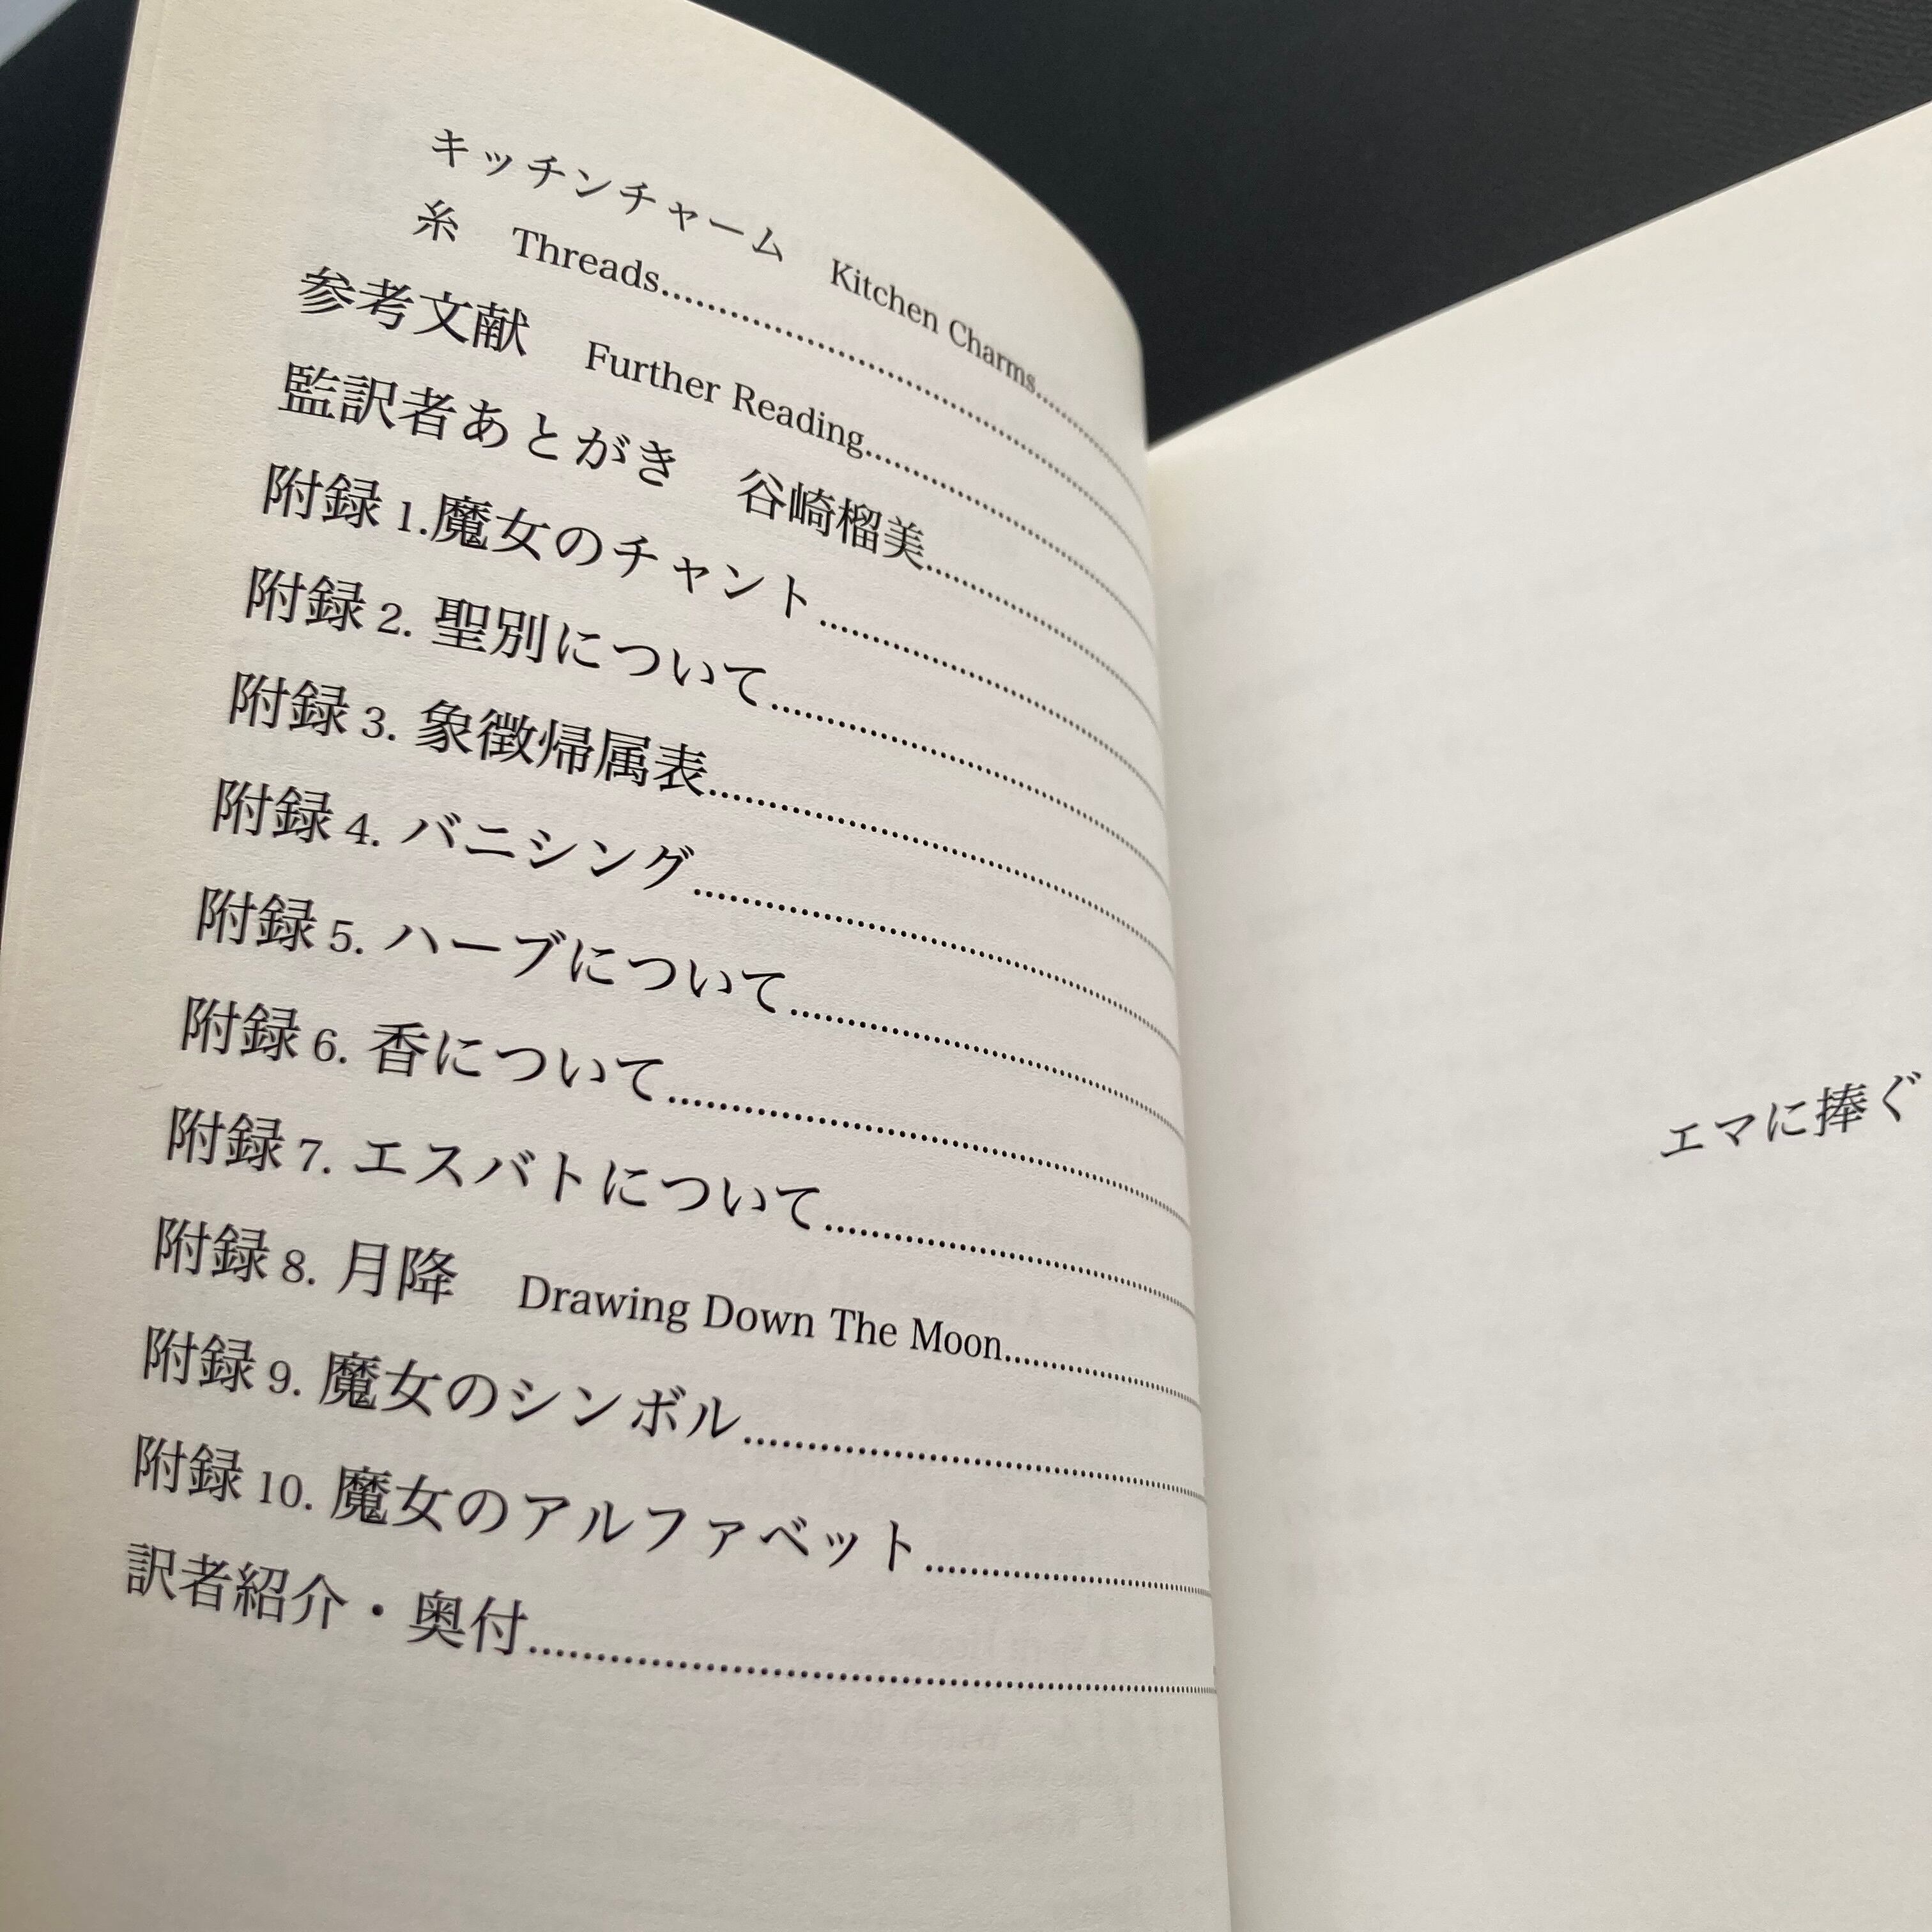 キッチンチャーム　Kitchen Charms
糸　Threads
参考文献　Further Reading
監訳者あとがき　谷崎榴美
附録 1.魔女のチャント
附録 2. 聖別について
附録 3. 象徴帰属表
附録 4. バニシング
附録 5. ハーブについて
附録 6. 香について
附録 7. エスバトについて
附録 8. 月降　Drawing Down The Moon
附録 9. 魔女のシンボル
附録 10. 魔女のアルファベット
訳者紹介・奥付
エマに捧ぐ